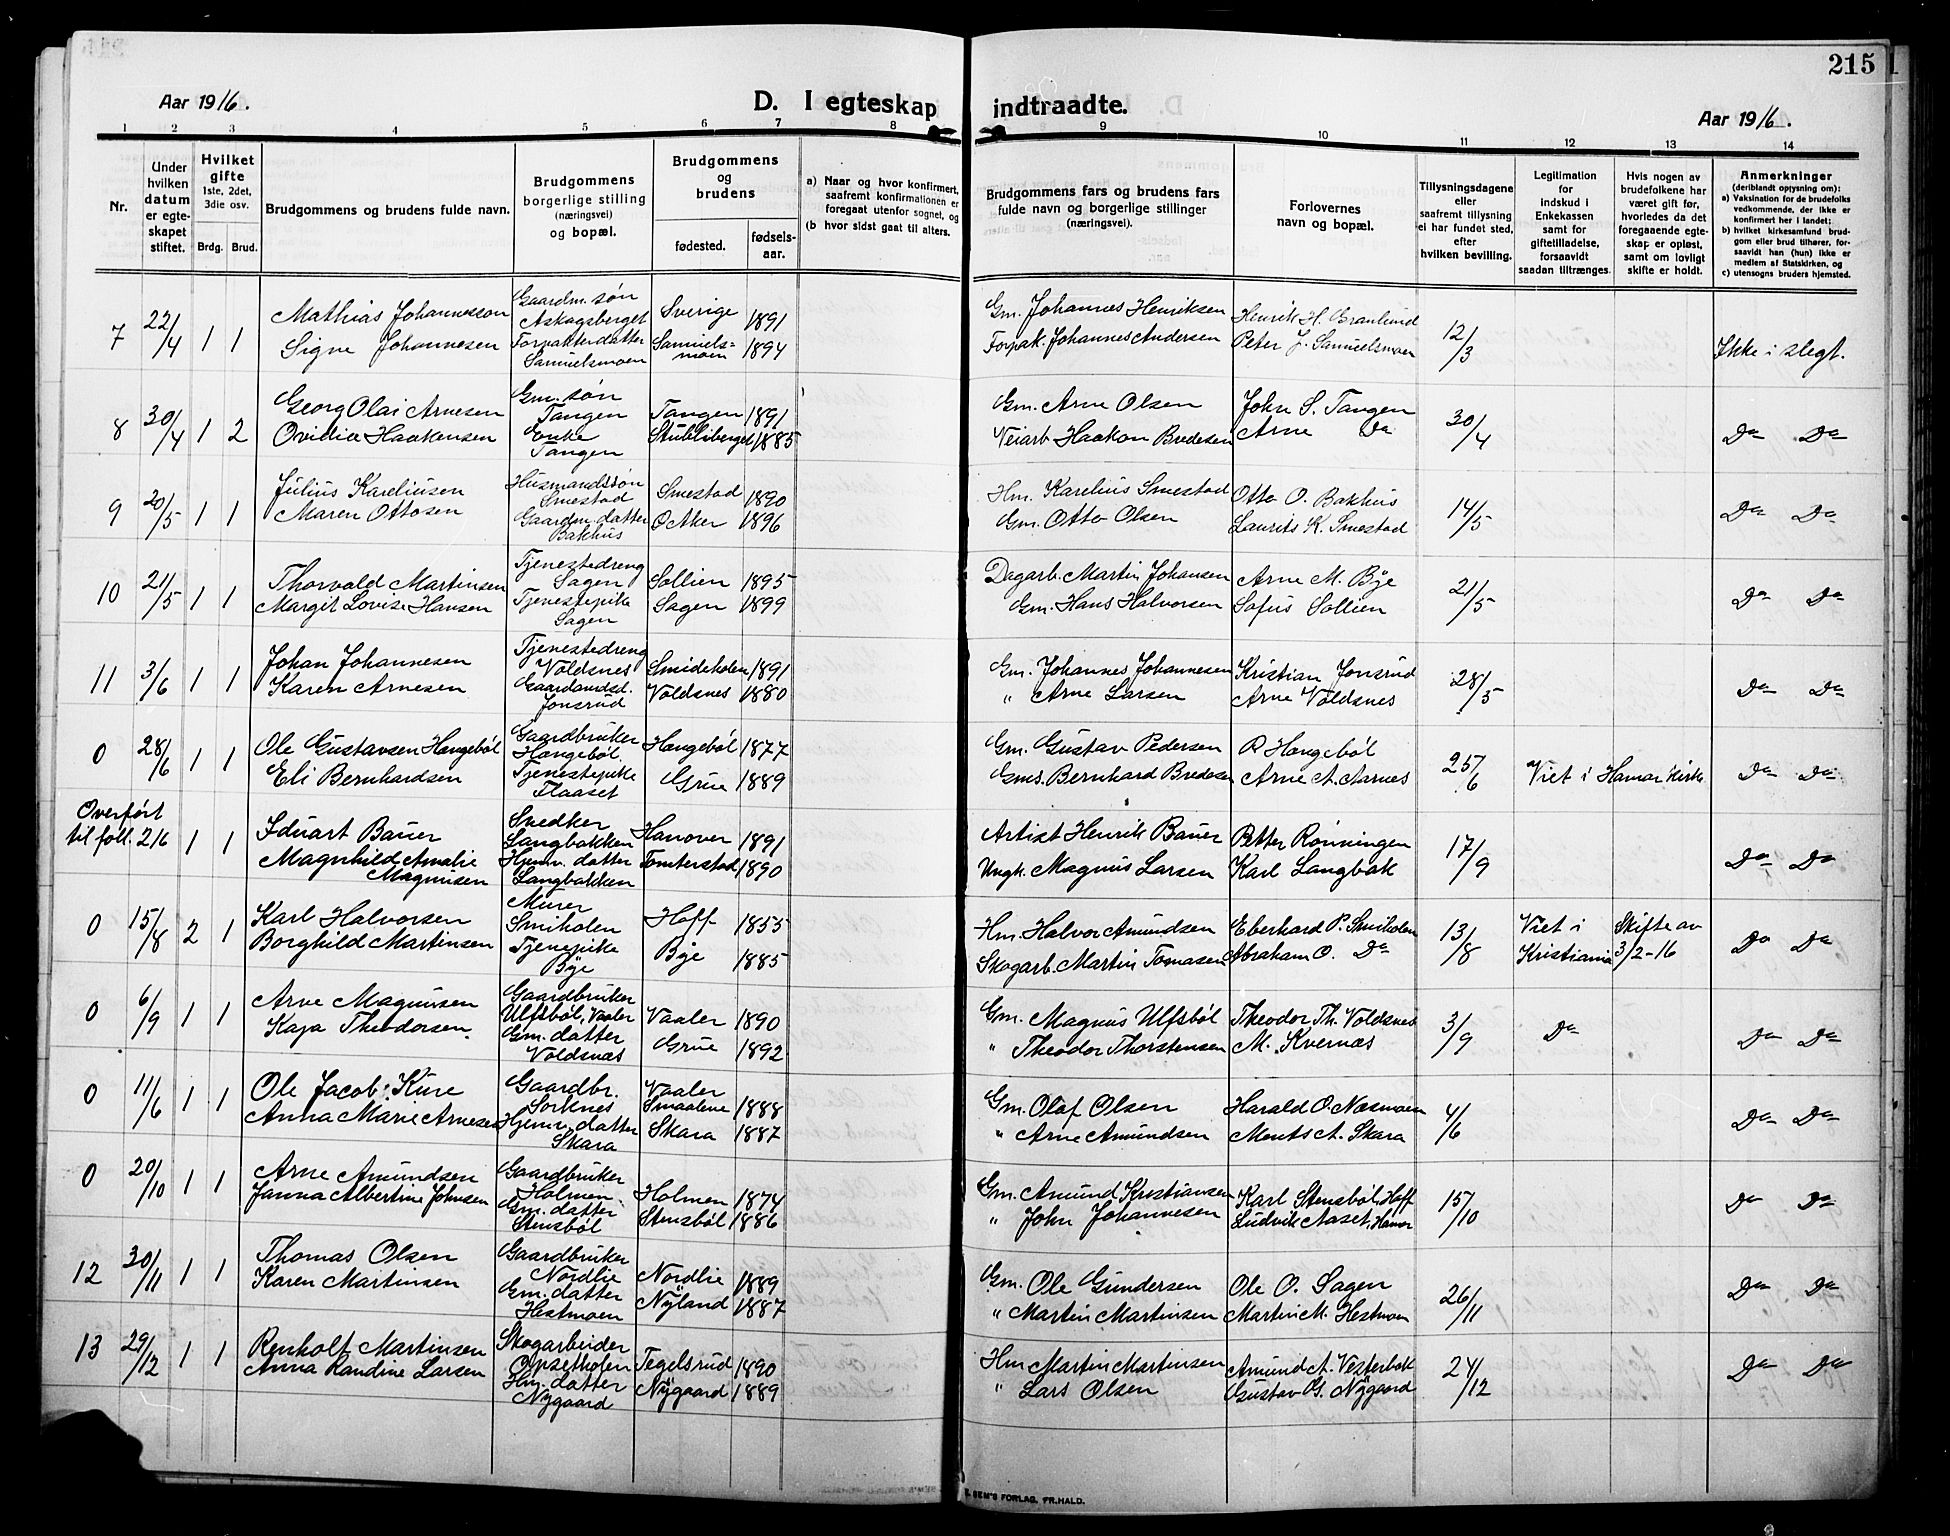 215
Aar 1916.
D. I egteskap indtraadte.
Aar 1916.
1 2 3 4 5 6 7 8 9 10 11 12 13 14
Nr.
Under hvilken datum er egteskapet stiftet.
Hvilket gifte 1ste, 2det, 3die osv.
Brdg. Brud.
Brudgommens og brudens fulde navn.
Brudgommens borgerlige stilling (næringsvei) og bopæl.
Brudgommens og brudens
fødested. fødselsaar.
a) Naar og hvor konfirmert, saafremt konfirmationen er foregaat utenfor sognet, og
(b hvor sidst gaat til alters.
Brudgommens fars og brudens fars fulde navn og borgerlige stillinger (næringsvei).
Forlovernes navn og bopæl.
Tillysningsdagene eller saafremt tillysning ei har fundet sted, efter hvilken bevilling.
Legitimation for indskud i Enkekassen samt for giftetilladelse, forsaavidt saadan tiltrænges.
Hvis nogen av brudefolkene har været gift før, hvorledes da det foregaaende egteskap er opløst, samt om lovligt skifte er holdt.
Anmerkninger (deriblandt oplysning om):
a) Vaksination for de brudefolks vedkommende, der ikke er konfirmert her i landet;
b) hvilket kirkesamfund brudgom eller brud tilhører, forsaavidt han (hun) ikke er medlem af Statskirken, og
c) utensogns bruders hjemsted.
7 22/4 1 1 Mathias Johannesson Gaardm. søn Askagsberget Sverige 1891 Gm. Johannes Henriksen Henrik H. Branlund 12/3 Ikke i slegt.
Signe Johannesen Forpakterdatter Samuelsmoen Samuelsmoen 1894 Forpak. Johannes Andersen Peter J. Samuelsmoen
8 30/4 1 2 Georg Olai Arnesen Gm. søn Tangen Tangen 1891 Gm. Arne Olsen John S. Tangen 30/4 Do Do
Ovidia Haakensen Enke Tangen Stubliberget 1885 Veiarb Haakon Bredesen Arne Do
9 20/5 1 1 Julius Kareliusen Husmandssøn Smestad Smestad 1890 Hm. Karelius Smestad Otto O. Bakhus 14/5 Do Do
Maren Ottosen Gaardm. datter Bakhus Octker 1896 Gm. Otto Olsen Laurits K. Smestad
10 21/5 1 1 Thorvald Martinsen Tjenestedreng Sagen Sollien 1895 Dagarb. Martin Johansen Arne M. Bÿe 21/5 Do Do
Margit Lovise Hansen Tjenestepike Sagen Sagen 1899 Gm. Hans Halvorsen Sofus Sollien
11 3/6 1 1 Johan Johannesen Tjenestedreng Voldsnes Smideholen 1891 Gm. Johannes Johannesen Kristian Jonsrud 28/5 Do Do
Karen Arnesen Gaardmdsd. Jonsrud Voldsnes 1880 " Arne Larsen Arne Voldsnes
0 28/6 1 1 Ole Gustavsen Hangebøl Gaardbruker Hangebøl. Hangebøl 1877 Gm. Gustav Pedersen R Hangebøl 25/6 Viet i Hamar kirk. Do Do
Eli Bernhardsen Tjenestepike Flaaset Grue 1889 Gms. Bernhard Bredesen Arne A. Aarnes
Overført til foll. 216 1 1 Eduart Bauer Snedker Langbakken Hanover 1891 Artist Henrik Bauer Petter Rønningen 17/9 Do Do
Magnhild Amalie Magnusen Hjemv. datter Langbakken Tomterstad 1890 Ungk. Magnus Larsen Karl Langbak
0 15/8 2 1 Karl Halvorsen Murer Smiholen Hoff 1855 Hm. Halvor Amundsen Eberhard P. Smiholen 13/8 Viet i Kristiania Skifte av 3/2-16 Do Do
Borghild Martinsen Tjenepike Bÿe Bÿe 1885 Skogarb. Martin Tomasen Abraham O. Do
0 6/9 1 1 Arve Magnusen Gaardbruker Ulfsbøl, Vaaler Vaaler 1890 Gm. Magnus Ulfsbøl Theodor Th. Voldsnes 3/9 Do Do Do
Kaja Theodorsen. Gm. datter Voldsnæs Grue 1892 " Theodor Thorstensen M. Kvernæs
0 11/6 1 1 Ole Jacob: Kure Gaardbr. Sorknes Vaaler Smaalene 1888 Gm. Olaf Olsen Harald O. Næsmoen 4/6 Do Do
Anna Marie Arnesen Hjemv. datter Skara Skara 1887 " Arne Amundsen Ments A. Skara
0 20/10 1 1 Arne Amundsen Gaardbruker Holmen. Holmen 1874 Gm. Amund Kristiansen Karl Stensbøl, Hoff 15/10 Do Do
Janna Albertine Johnsen Gm. datter Stensbøl Stensbøl 1886 " John Johannesen Ludvik Aaset, Hamar
12 30/11 1 1 Thomas Olsen Gaardbruker Nordlie Nordlie 1889 Gm. Ole Gundersen Ole O. Sagen 26/11 Do Do
Karen Martinsen Gm. datter Hestmoen Nÿland 1887 " Martin Martinsen Martin M. Hestmoen
13 29/12 1 1 Renholt Martinsen Skogarbeider Opsetholen Tegelsrud 1890 Hm Martin Martinsen Amund A. Vesterbak 24/12 Do Do
Anna Randine Larsen Hm. datter Nygaard Nÿgaard 1889 " Lars Olsen Gustav G. Nÿgaard
SEM'S FORLAG, FR.HALD.